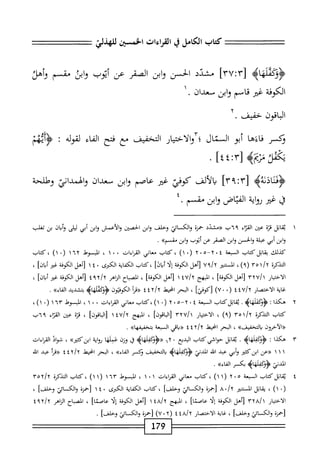 كتاب الكامل في القراءات الخمسين للهذلي
﴿وَكَفَّلَهَا﴾ [٣٧:٣] مشدّد الحسن وابن الصقر عن أيّوب وابنُ مقسم وأهلُ
الكوفة غير قاسم وابن سعدان .١
الباقون خفيف .٢
وكسر فاءها أبو السمّال ؛٣ والاختيار التخفيف مع فتح الفاء لقوله : ﴿أَيُّهُمْ
يَكْفُلُ مَرْيَمَ﴾ [٤٤:٣] .
﴿فَنَادَىٰهُ﴾ [٣٩:٣] بالألف كوفيّ غير عاصم وابن سعدان والهمدانيّ وطلحة
في غير رواية الفيّاض وابن مقسم .٤
١ يُقابل قرّة عين القرّاء ٦٩ب «مشدّد حمزة والكسائيّ وخلف وابن الحصين والأعمش وابن أبي ليلى وأبان بن تغلب
وابن أبي عبلة والحسن وابن الصقر عن أيّوب وابن مقسم» .
كذلك يقابل كتاب السبعة ٢٠٤-٢٠٥ (١٠) ، كتاب معاني القراءات ١٠٠ ، المبسوط ١٦٢ (١٠) ، كتاب
التذكرة ٣٥١/٢ (٩) ، المستنير ٧٩/٢ [أهل الكوفة إلّا أبان] ، كتاب الكفاية الكبرى ١٤٠ [أهل الكوفة غير أبان] ،
الاختيار ٣٢٧/١ [أهل الكوفة] ، المبهج ١٤٧/٢ [أهل الكوفة] ، المصباح الزاهر ٤٩٢/٢ [أهل الكوفة غير أبان] ،
غاية الاختصار ٤٤٧/٢ (٧٠٠) [كوفيّ] ، البحر المحيط ٤٤٢/٢ «قرأ الكوفيّون ﴿وَكَفَّلَهَا﴾ بتشديد الفاء» .
٢ هكذا : ﴿وَكَفَلَهَا﴾ . يُقابل كتاب السبعة ٢٠٤-٢٠٥ (١٠) ، كتاب معاني القراءات ١٠٠ ، المبسوط ١٦٣ (١٠) ،
كتاب التذكرة ٣٥١/٢ (٩) ، الاختيار ٣٢٧/١ [الباقون] ، المبهج ١٤٧/٢ [الباقون] ، قرّة عين القرّاء ٦٩ب
«الآخرون بالتخفيف» ، البحر المحيط ٤٤٢/٢ «باقي السبعة بتخفيفها» .
٣ هكذا : ﴿وَكَفِلَهَا﴾ . يُقابل حواشي كتاب البديع ٢٠ ، «﴿وَكَفِلَهَا﴾ في وزن عَمِلَها رواية ابن كثير» ، شواذّ القراءات
١١١ «عن ابن كثير وأبي عبد الله المدنيّ ﴿وَكَفِلَهَا﴾ بالتخفيف وكسر الفاء» ، البحر المحيط ٤٤٢/٢ «قرأ عبد الله
المدنيّ ﴿وَكَفِلَهَا﴾ بكسر الفاء» .
٤ يُقابل كتاب السبعة ٢٠٥ (١١) ، كتاب معاني القراءات ١٠١ ، المبسوط ١٦٣ (١١) ، كتاب التذكرة ٣٥٢/٢
(١٠) ، يقابل المستنير ٨٠/٢ [حمزة والكسائيّ وخلف] ، كتاب الكفاية الكبرى ١٤٠ [حمزة والكسائيّ وخلف] ،
الاختيار ٣٢٨/١ [أهل الكوفة إلّا عاصمًا] ، المبهج ١٤٨/٢ [أهل الكوفة إلّا عاصمًا] ، المصباح الزاهر ٤٩٢/٢
[حمزة والكسائيّ وخلف] ، غاية الاختصار ٤٤٨/٢ (٧٠٢) [حمزة والكسائيّ وخلف] .
179